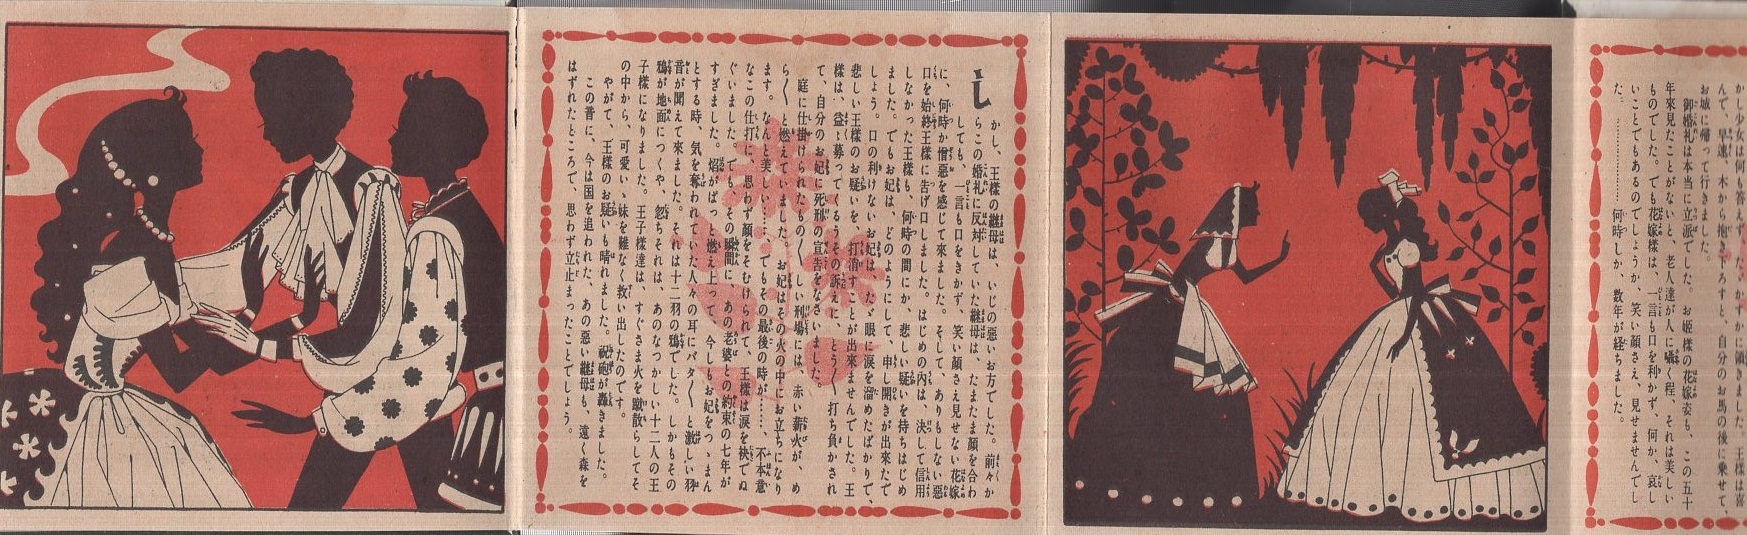 かし少女は何も答えず、たゞかすかに頷きました。王様は喜
んで、早速、木から抱きおろすと、自分のお馬の後に乗せて、
お城に帰って行きました。
御婚礼は本当に立派でした。お姫様の花嫁姿も、この五十
年来見たことがないと、老人達が人に囁く程、それは美しい
ものでした。でも花嫁様は、一言も口を利かず、何か、哀し
いことでもあるのでしょうか、笑い顔さえ、見せませんでし
た。…………何時しか、数年が経ちました。
しかし、王様の継母は、いじの悪いお方でした。前々か
らこの婚礼に反対していた継母は、たまたま顔を合わ
しても、一言も口をきかず、笑い顔さえ見せない花嫁
に、何時か憎悪を感じて来ました。そして、ありもしない悪
口を始終王様に告げ口しました。はじめの内は、決して信用
しなかった王様も、何時の間にか、悲しい疑いを持ちはじめ
ました。でもお妃は、どのようにして、申し開きが出来たで
しょう。口の利けないお妃は、たゞ眼に涙を溜めたばかりで、
悲しい王様のお疑いを、打消すことが出来ませんでした。王
様は、益々募ってくるうその訴えに、とう〳〵打ち負かされ
て、自分のお妃に死刑の宣告をなさいました。
庭に仕掛けられたもの〳〵しい刑場には、赤い薪火が、め
ら〳〵と燃えていました。お妃はその火の中にお立ちになり
ます。なんと美しい……でもその最後の時が……、不本意
なこの仕打に、思わず顔をそむけられて、王様は涙を袂でぬ
ぐいました。でも、その瞬間に、あの老婆との約束の七年が
すぎました。焔がぱっと燃え上って、今しもお妃をつゝまん
とする時、気を奪われていた人々の耳にバタ〳〵と激しい羽
音が聞えて来ました。それは十二羽の鴉でした。しかもその
鴉が地面につくや、忽ちそれは、あのなつかしい十二人の王
子様になりました。王子様達は、すぐさま火を蹴散らしてそ
の中から、可愛いゝ妹を難なく救い出したのです。
やがて、王様のお疑いも晴れました。祝砲が轟きました。
この音に、今は国を追われた、あの悪い継母も、遠く森を
はずれたところで、思わず立止まったことでしょう。